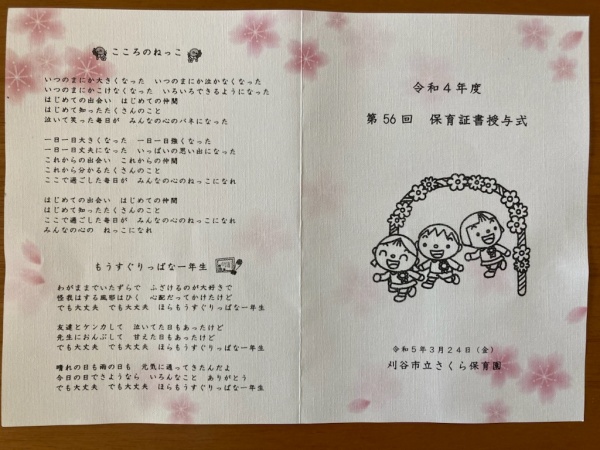 こころのねっこ
いつのまにか大きくなった　いつのまにか泣かなくなった
いつのまにかこけなくなった　いろいろできるようになった
はじめての出会い　はじめての仲間
はじめて知ったたくさんのこと
泣いて笑った毎日が　みんなの心のバネになった
一日一日大きくなった　一日一日強くなった
一日一日丈夫になった　いっぱいの思い出になった
これからの出会い　これからの仲間
これから分かるたくさんのこと
ここで過ごした毎日が　みんなの心のねっこになれ
はじめての出会い　はじめての仲間
はじめて知ったたくさんのこと
ここで過ごした毎日が　みんなの心のねっこになれ
みんなの心の　ねっこになれ
もうすぐりっぱな一年生
わがままでいたずらで　ふざけるのが大好きで
怪我はする風邪はひく　心配だってかけたけど
でも大丈夫　でも大丈夫　ほらもうすぐりっぱな一年生
友達とケンカして　泣いてた日もあったけど
先生におんぶして　甘えた日もあったけど
でも大丈夫　でも大丈夫　ほらもうすぐりっぱな一年生
晴れの日も雨の日も　元気に通ってきたんだよ
今日の日でさようなら　いろんなこと　ありがとう
でも大丈夫　でも大丈夫　ほらもうすぐりっぱな一年生
令和4年度
第56回　保育証書授与式
令和5年3月24日(金)
刈谷市立さくら保育園